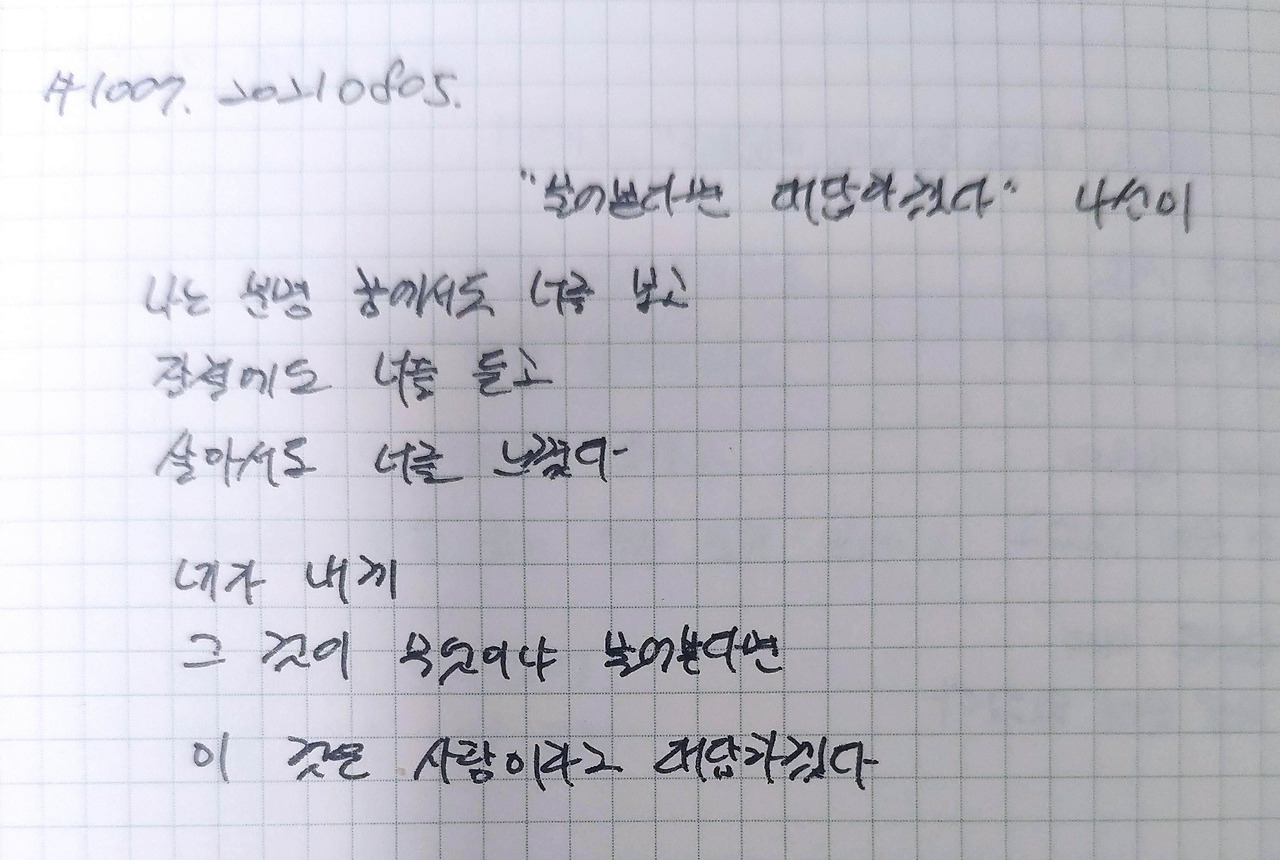 #1007. 20210805.
"물어본다면 대답하겠다" 나선이
나는 분명 꿈에서도 너를 보고
잠결에도 너를 듣고
살아서도 너를 느꼈다
네가 내게
그 것이 무엇이냐 물어본다면
이 것은 사랑이라고 대답하겠다